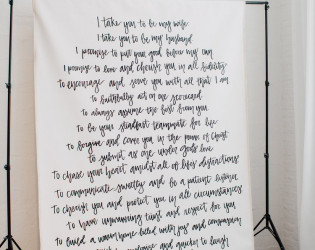 I take you to be my wife
I take you to be my husband
I promise to put your good before my own
I promise to love and cherish you in all
to encourage and serve you with all that I am
to faithfully act on one
to always assume the best from you
to be your steadfast teammate for life
to forgive and cover you in the power of Christ
to submit as one under god's love
to chase your heart amidst all of life's distractions
to communicate sweetly and be a patient listener
to cherish you and protect you in all circumstances
to have unwavering trust and respect for you
to build a warm home filled with joy and compassion
and quick to laugh